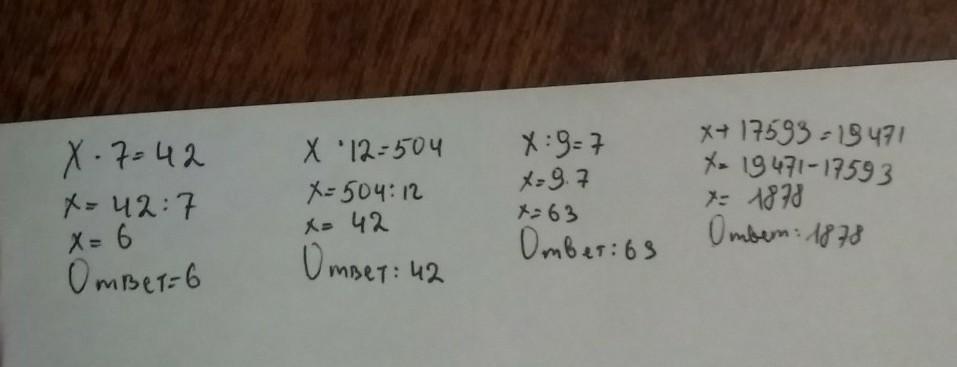 x · 7 = 42
x = 42 : 7
x = 6
Ответ = 6
x · 12 = 504
x = 504 : 12
x = 42
Ответ: 42
x : 9 = 7
x = 9 · 7
x = 63
Ответ: 63
x + 17593 = 19471
x = 19471 - 17593
x = 1878
Ответ: 1878